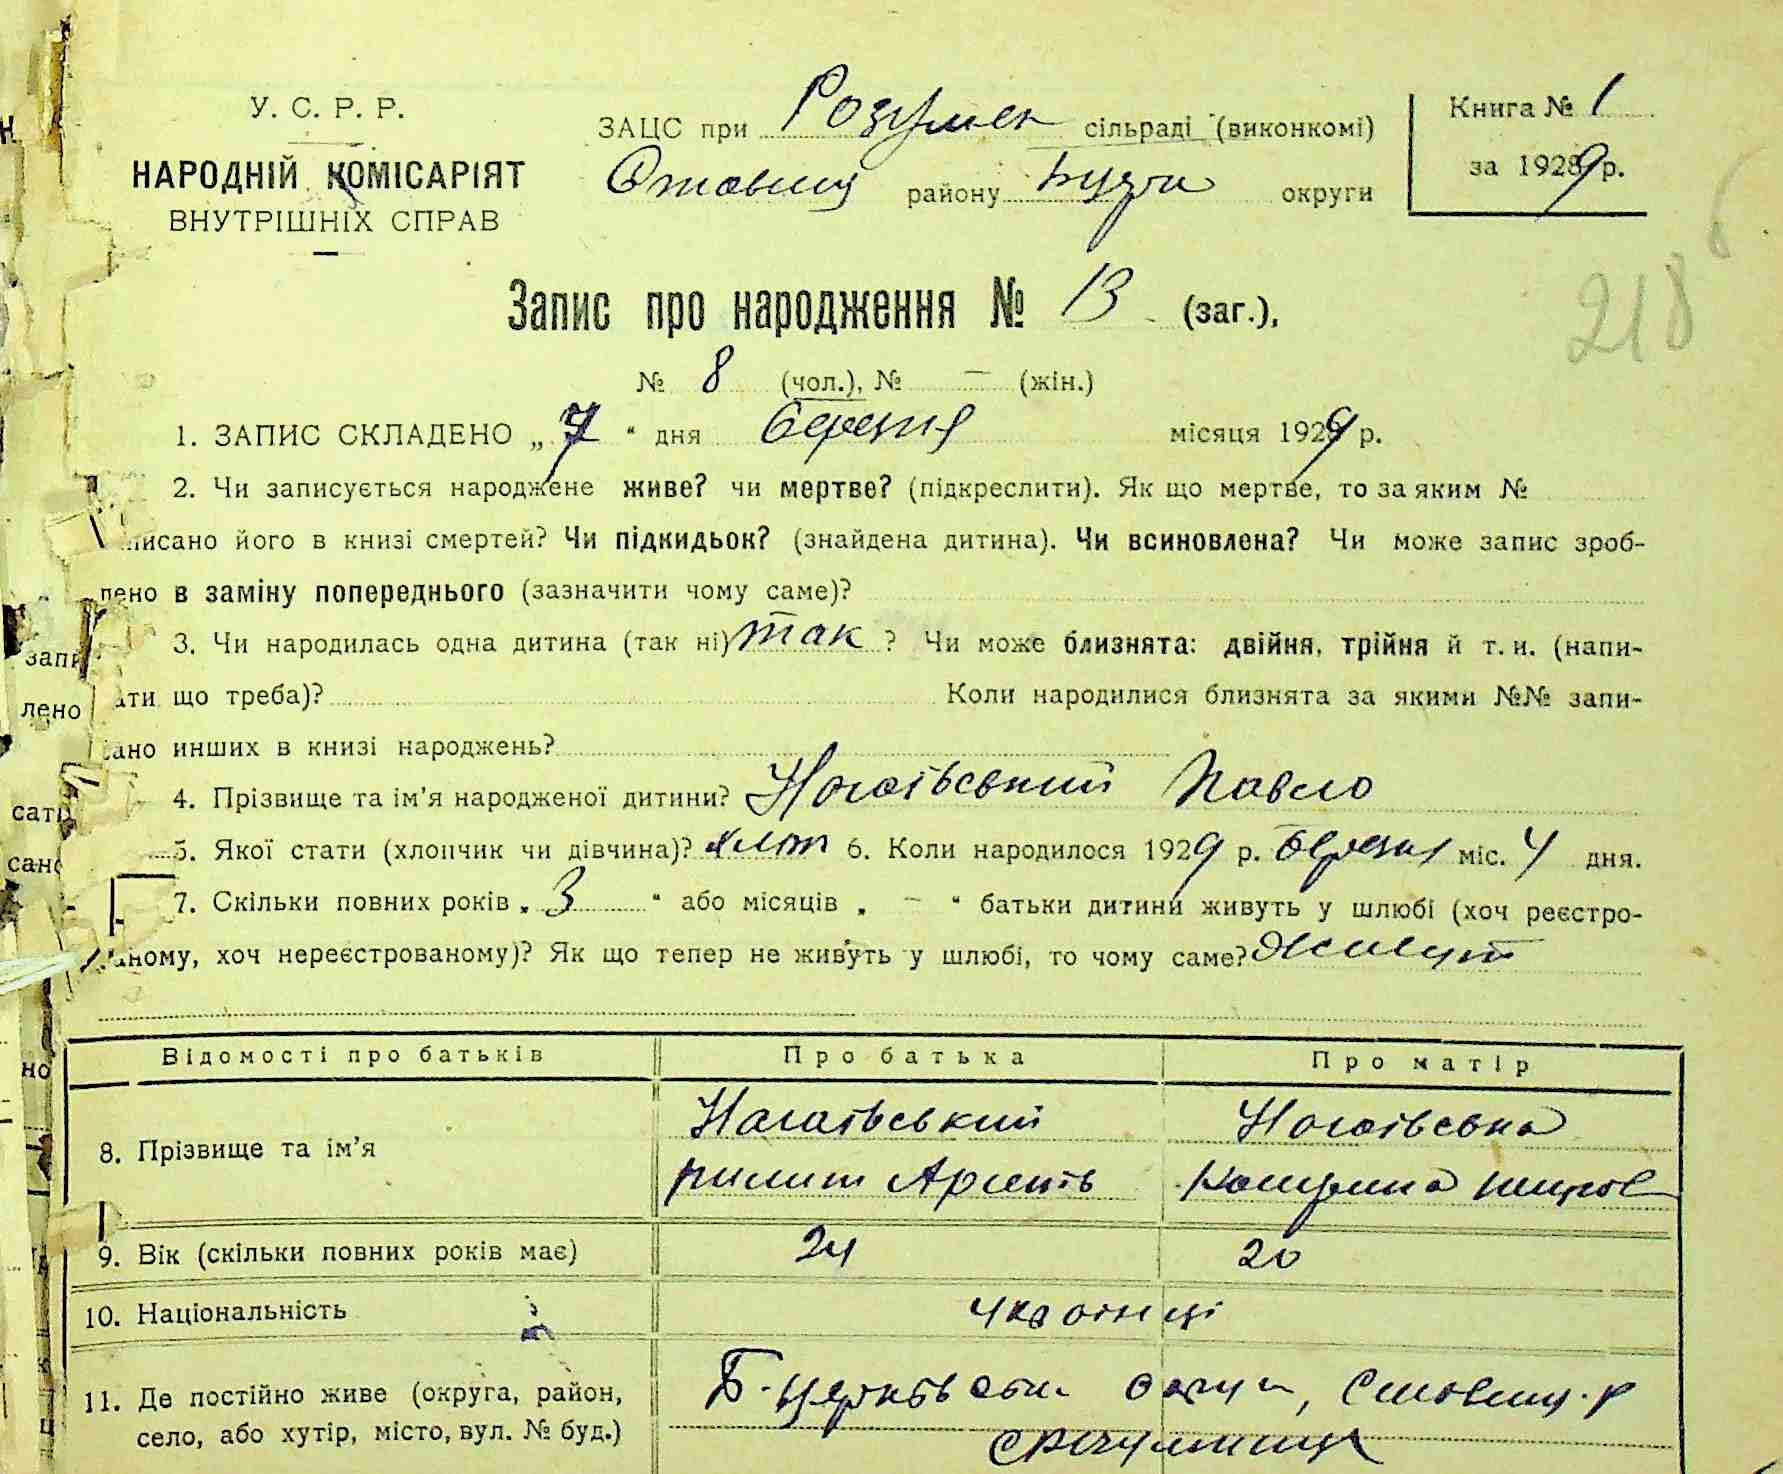 У. С. Р. Р.
НАРОДНІЙ КОМІСАРІЯТ
ВНУТРІШНІХ СПРАВ
ЗАЦС при Розумен сільраді (виконкомі)
району округи
Книга № 1
за 1929 р.
218
Запис про народження № 13 (заг.),
№ 8 (чол.), № — (жін.)
1. ЗАПИС СКЛАДЕНО „ 7 “ дня березня місяця 1929 р.
2. Чи записується народжене живе? чи мертве? (підкреслити). Як що мертве, то за яким №
писано його в книзі смертей? Чи підкидьок? (знайдена дитина). Чи всиновлена? Чи може запис зроб-
лено в заміну попереднього (зазначити чому саме)?
3. Чи народилась одна дитина (так ні) так ? Чи може близнята: двійня, трійня й т. и. (напи-
ати що треба)? Коли народилися близнята за якими №№ запи-
сано инших в книзі народжень?
4. Прізвище та ім’я народженої дитини? Ногаївський Павло
5. Якої стати (хлопчик чи дівчина)? 6. Коли народилося 1929 р. березня міс. 4 дня.
7. Скільки повних років „ 3 “ або місяців „ — “ батьки дитини живуть у шлюбі (хоч реєстро-
ваному, хоч нереєстрованому)? Як що тепер не живуть у шлюбі, то чому саме? Живут
Відомості про батьків Про батька Про матір
8. Прізвище та ім’я Нагаївський Ногаївська
9. Вік (скільки повних років має) 24 20
10. Національність
11. Де постійно живе (округа, район,
село, або хутір, місто, вул. № буд.)
Б. Церківська